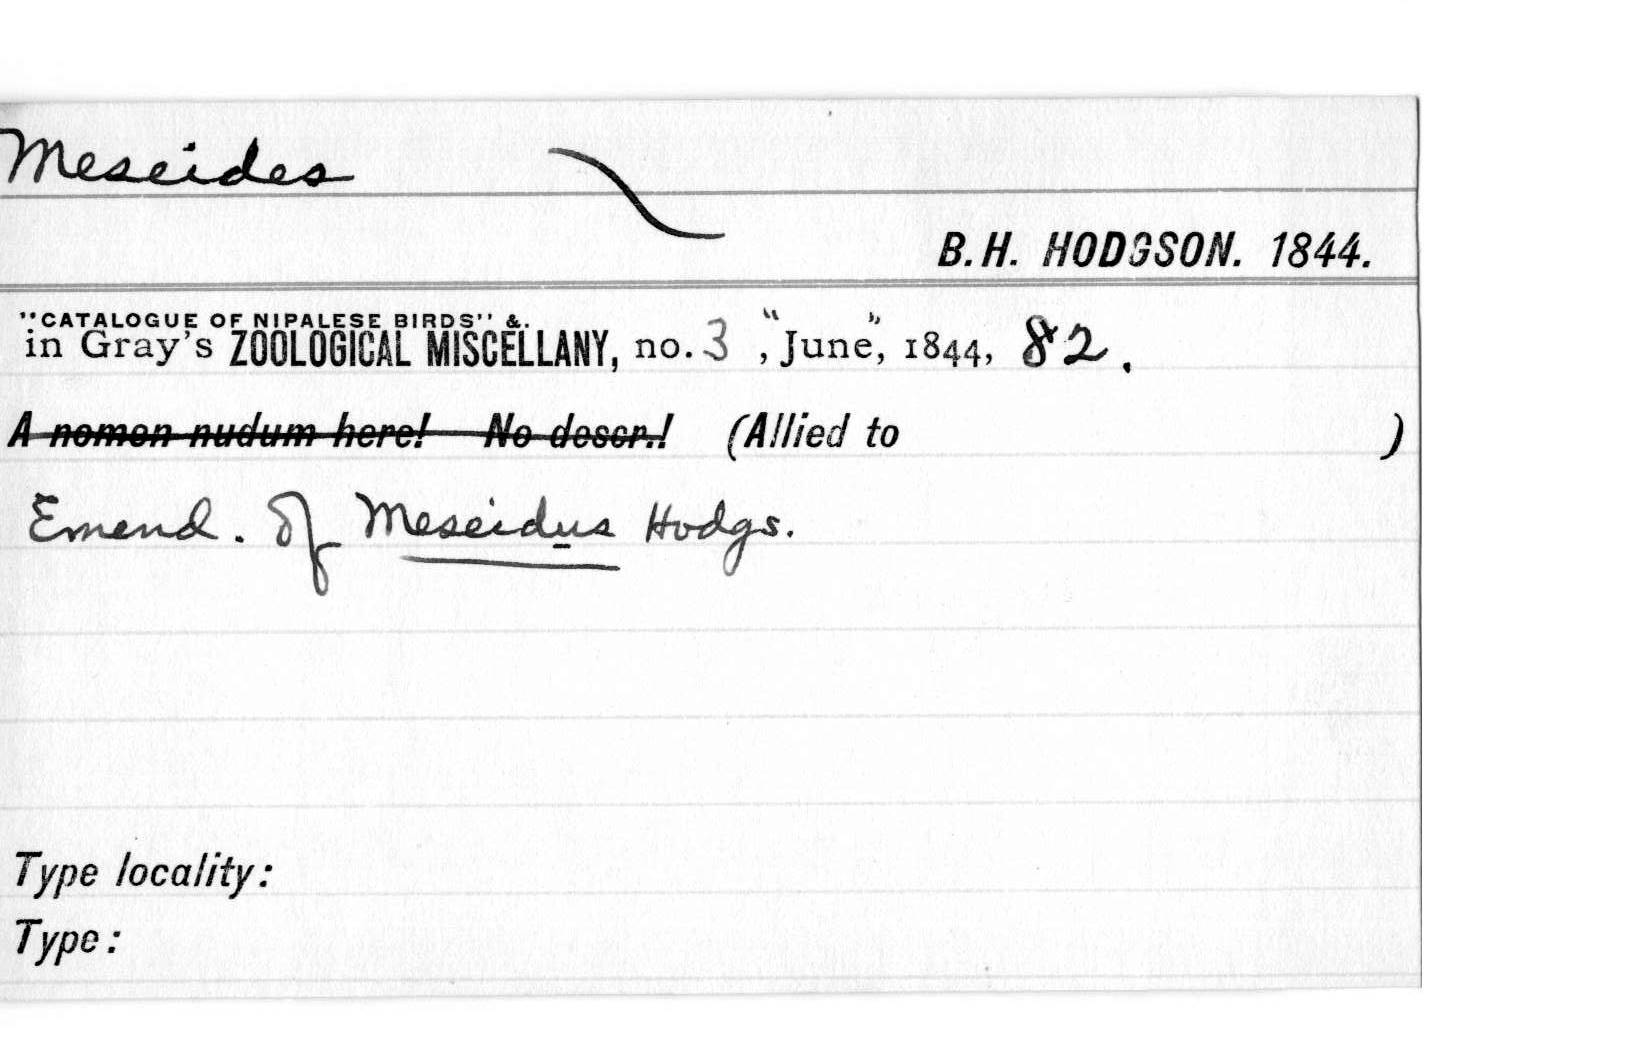 Meseides
B.H. HODGSON. 1844.
"CATALOGUE OF NIPALESE BIRDS" &.
in Gray's ZOOLOGICAL MISCELLANY, no. 3 , "June", 1844, 82.
A nomen nudum here! No descr.! (Allied to )
Emend. of Meseidus Hodgs.
Type locality:
Type: